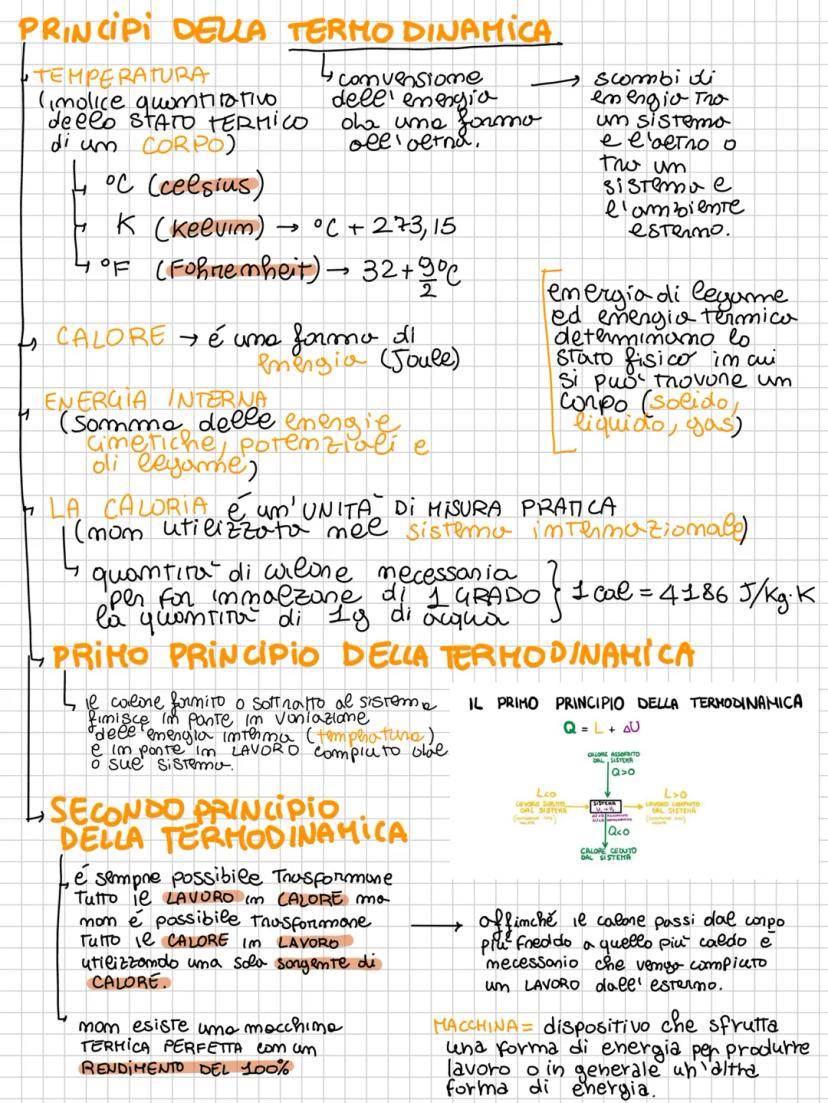 PRINCIPI DELLA TERMODINAMICA
TEMPERATURA
(indice quantitativo
dello STATO TERMICO
di un CORPO)
conversione
dell'energia
da una forma
all'altra.
scambi di
energia tra
un sistema
e l'altro o
tra un
sistema e
l'ambiente
esterno.
°C (celsius)
K (kelvin) → °C + 273,15
°F (Fahrenheit) → 32+9/2°C
energia di legame
ed energia termica
determinano lo
stato fisico in cui
si può trovare un
corpo (solido,
liquido, gas)
CALORE → é una forma di
energia (Joule)
ENERGIA INTERNA
(somma delle energie
cinetiche, potenziali e
di legame)
LA CALORIA é un'UNITA' DI MISURA PRATICA
(non utilizzata nel sistema internazionale)
quantita' di calore necessaria
per far innalzare di 1 GRADO
la quantita' di 1g di acqua
1 cal = 4186 J/Kg·K
PRIMO PRINCIPIO DELLA TERMODINAMICA
il calore fornito o sottratto al sistema
finisce in parte in variazione
dell'energia interna (temperatura)
e in parte in LAVORO compiuto dal
o sul sistema.
IL PRIMO PRINCIPIO DELLA TERMODINAMICA
Q = L + ΔU
CALORE ASSORBITO
DAL SISTEMA
Q>0
L<0
LAVORO SUBITO
DAL SISTEMA
SISTEMA
L>0
LAVORO COMPIUTO
DAL SISTEMA
Q<0
CALORE CEDUTO
DAL SISTEMA
SECONDO PRINCIPIO
DELLA TERMODINAMICA
é sempre possibile trasformare
tutto il LAVORO in CALORE ma
non é possibile trasformare
tutto il CALORE in LAVORO
utilizzando una sola sorgente di
CALORE.
affinché il calore passi dal corpo
più freddo a quello più caldo é
necessario che venga compiuto
un LAVORO dall'esterno.
non esiste una macchina
TERMICA PERFETTA con un
RENDIMENTO DEL 100%
MACCHINA = dispositivo che sfrutta
una forma di energia per produrre
lavoro o in generale un'altra
forma di energia.